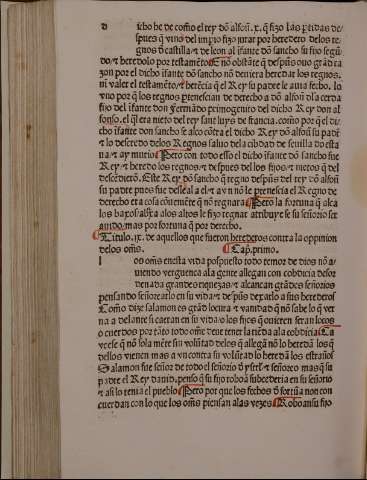 d icho he de como el rey dō alfon̄. x. q̄ fizo las ꝑtidas des
pues q̄ vino del impio fizo jurar por heredero delos re
gnos d̄ castilla ⁊ de leon al ifante don sancho su fijo segū
do ⁊ heredolo por testamēto E nō obstāte q̄ despues ouo grād ra
zon por el dicho ifante dōn sancho nō deuiera heredar los regnos.
ni valer el testamēto ⁊ herēcia q̄ el Rey su padre le auia fecho. lo
vno por q̄ los regnos ꝑtenescian de derecho a dōn alfon̄ dla cerda
fijo del ifante don ferrādo primogenito del dicho Rey don al
fonso. el q̄l era nieto del rey sant luys de francia. como por que el di
cho ifante don sancho se alço contra el dicho Rey dōn alfon̄ su padr̄
⁊ lo deseredo delos Regnos saluo dela cibdad de seuilla do esta
ua ⁊ ay murio Pero con todo esso el dicho ifante dōn sancho fue
Rey ⁊ heredo los regnos ⁊ despues del los fijos ⁊ nietos q̄ del
descēdierō. Este Rey dōn sancho q̄ regno despues del rey dōn alfon̄
su padre pues fue desleal a el ⁊ avn nō le ꝑtenescia el Regno de
derecho era cosa cōueniēte q̄ nō regnara Pero la fortuna q̄ alca
los baxos ⁊ abaxa alos altos le fizo regnar atribuye se su señorio ser
auido mas por fortuna q̄ por derecho.
Titulo. ix. de aquellos que fueron herederos contra la oppinion
delos omēs. Cap. primo.
l os omēs enesta vida pospuesto todo temor de dios nō a
uiendo verguença ala gente allegan con cobdicia desor
denada grandes riquezas ⁊ alcançan grādes señorios
pensando señorearlo en su vida ⁊ despues dexarlo a sus herederos
Como dize salamon es grād locura ⁊ vanidad q̄ nō sabe lo q̄ ver
na a delante si caeran en su vida o los fijos q̄ ouieren seran locos
o cuerdos por tāto todo ome deue tener la rienda ala cobdicia Ca
veces q̄ nō sola mēte sin volūtad delos q̄ allegā nō lo heredā los q̄
dellos vienen mas avn contra su volūtad lo heredā los estraños
Salamon fue señor de todo el señorio d̄ ysrl̄ ⁊ señoreo mas q̄ su
padre el Rey dauid. penso q̄ su fijo roboā subcederia en su señorio
⁊ assi lo tenia el pueblo Pero por que los fechos d̄ fortūa non con
cuerdan con lo que los omēs piensan alas vezes Roboan su fijo